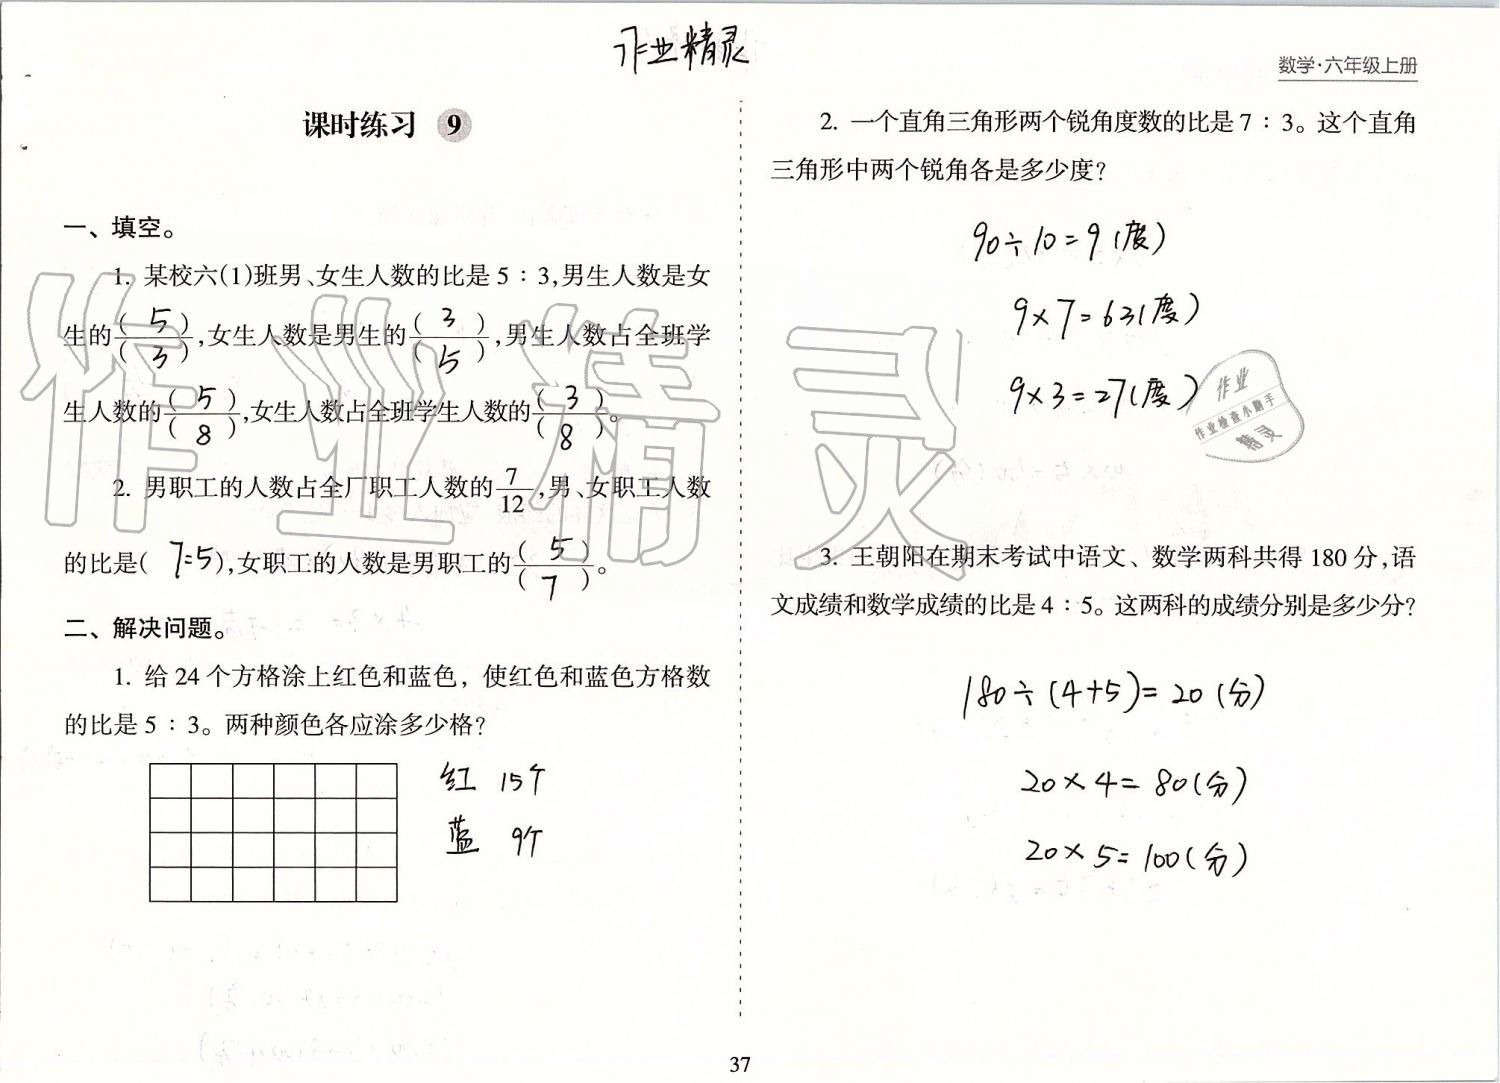 作业精灵
数学·六年级上册
课时练习 9
一、填空。
1. 某校六(1)班男、女生人数的比是 5∶3,男生人数是女
生的(5)/(3),女生人数是男生的(3)/(5),男生人数占全班学
生人数的(5)/(8),女生人数占全班学生人数的(3)/(8)。
2. 男职工的人数占全厂职工人数的7/12,男、女职工人数
的比是( 7:5 ),女职工的人数是男职工的(5)/(7)。
二、解决问题。
1. 给 24 个方格涂上红色和蓝色，使红色和蓝色方格数
的比是 5∶3。两种颜色各应涂多少格?
红 15个
蓝 9个
2. 一个直角三角形两个锐角度数的比是 7∶3。这个直角
三角形中两个锐角各是多少度?
90÷10=9(度)
9×7=63(度)
9×3=27(度)
3. 王朝阳在期末考试中语文、数学两科共得 180 分,语
文成绩和数学成绩的比是 4∶5。这两科的成绩分别是多少分?
180÷(4+5)=20(分)
20×4=80(分)
20×5=100(分)
作业精灵
作业
作业检查小助手
精灵
37